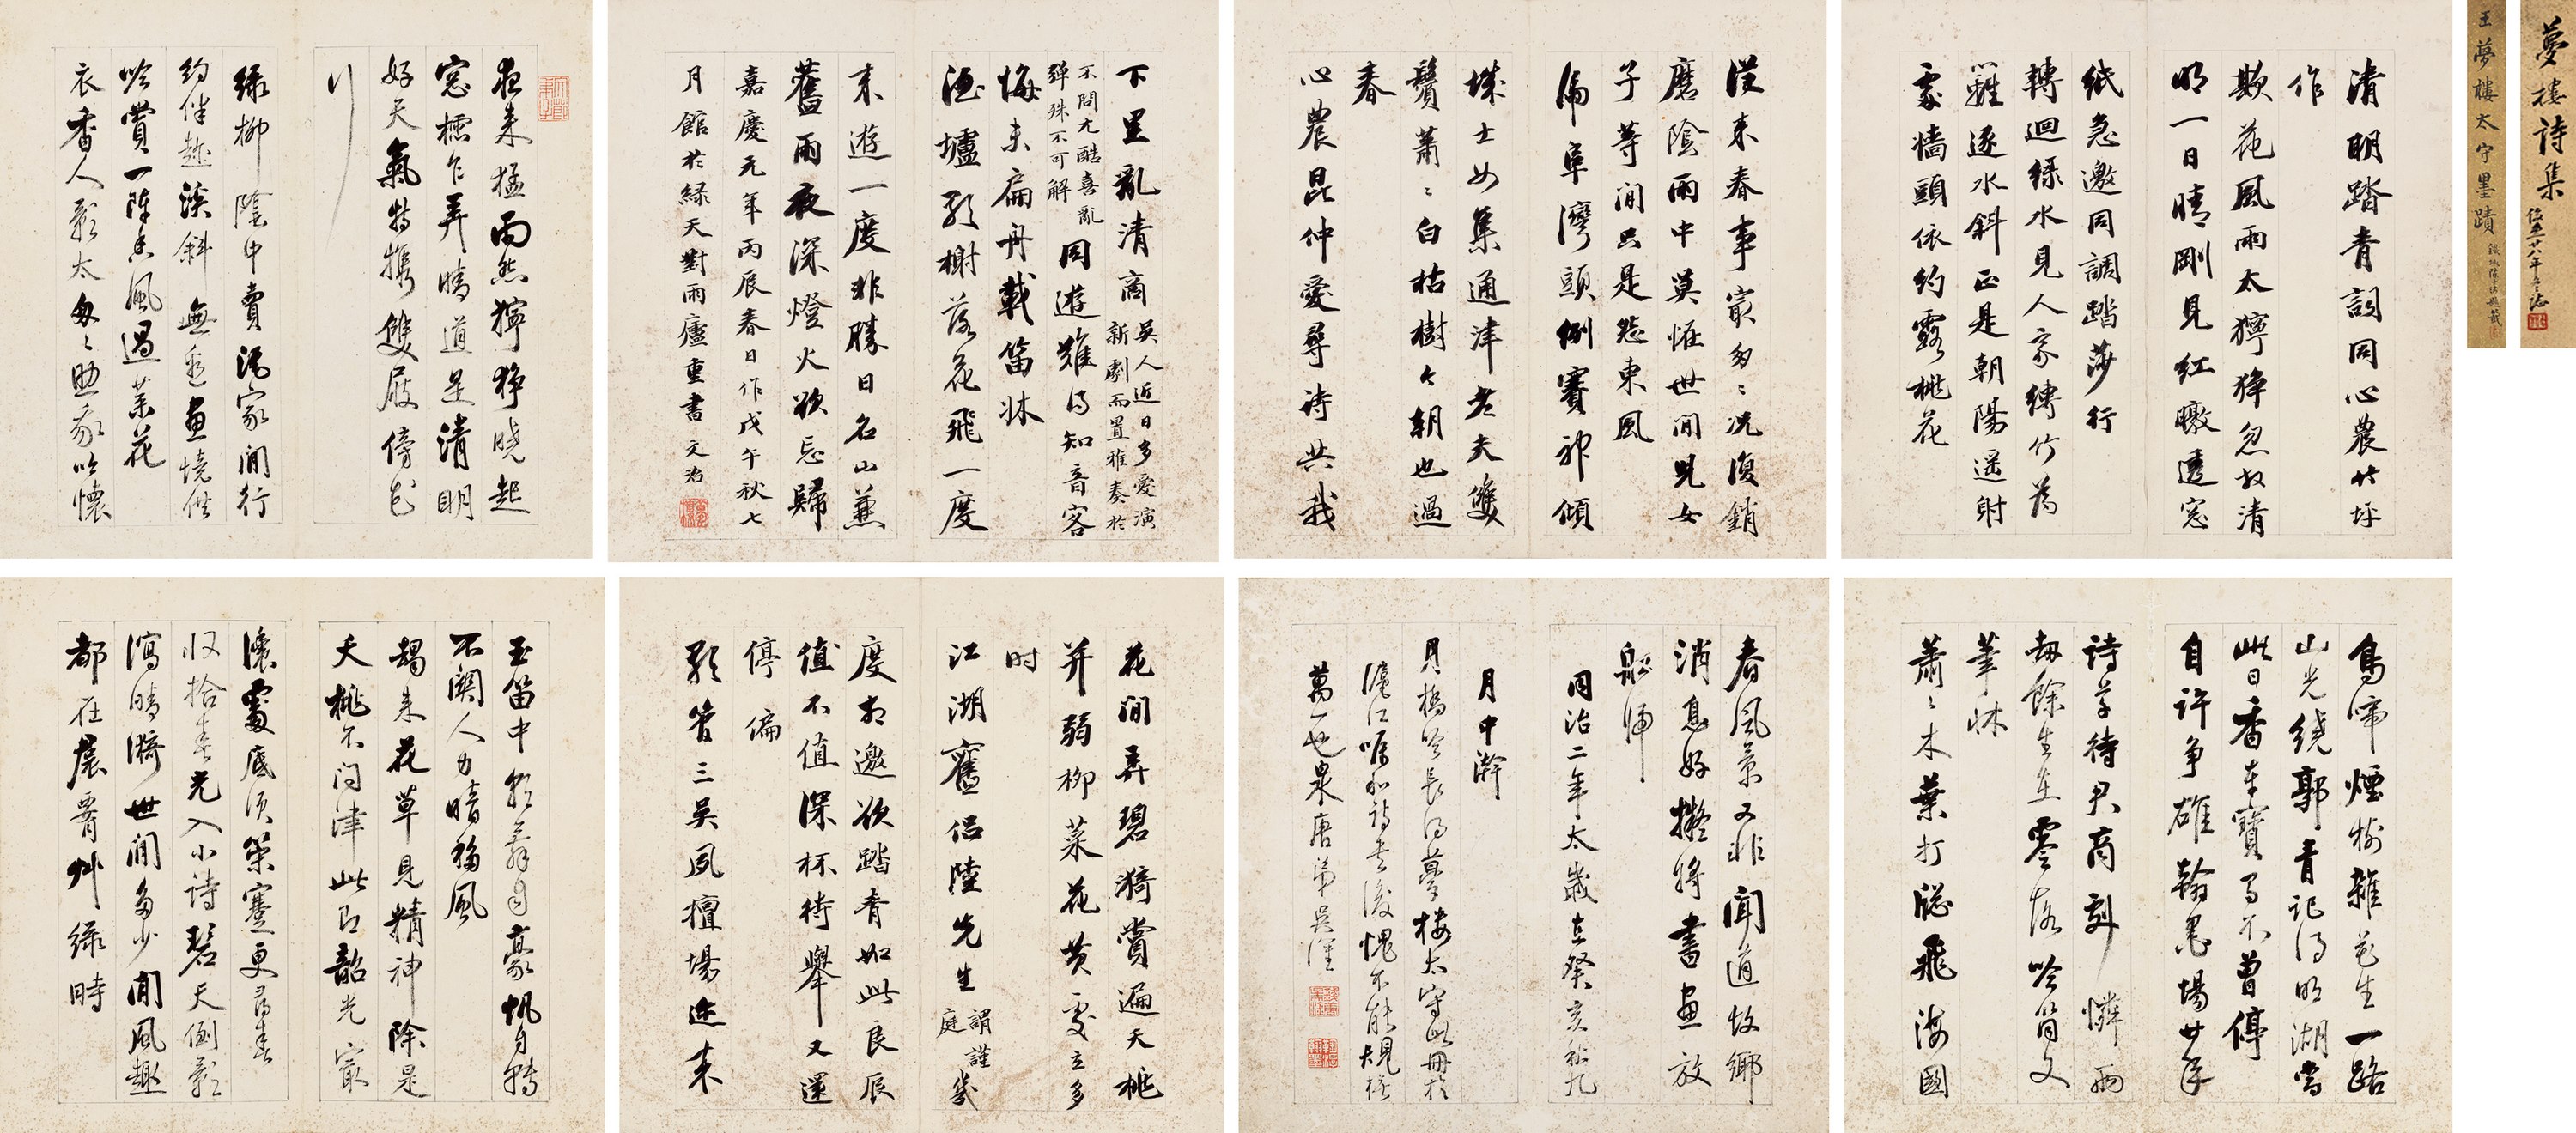 夢樓詩集
王夢樓太守墨蹟
清明踏青詞同心農竹坪
作
欺花風雨太獰猙忽放清
明一日晴剛見紅曒透窓
紙急邀同調踏莎行
轉迴綠水見人家縛竹為
籬逐水斜正是朝陽遙射
處牆頭依約露桃花
從來春事最匆匆況復銷
磨陰雨中莫恠世間兒女
子等閒只是怨東風
偏阜灣頭例賽神傾
城士女集通津老夫雙
鬢蕭蕭白枯樹今朝也過
春
心農昆仲愛尋詩共我
下里亂清商吳人近日多愛演新劇而置雅奏於
不問尤酷喜亂彈殊不可解同遊難得知音客
悔未扁舟載笛牀
酒壚歌榭落花飛一度
來遊一度非勝日名山兼
舊雨夜深燈火欲忘歸
嘉慶元年丙辰春日作戊午秋七
月館於綠天對雨廬重書文治
夜來猛雨煞獰猙曉起
窓櫺乍弄晴道是清明
好天氣特攜雙屐傍花
行
綠柳陰中賣酒家閒行
約伴趁溪斜無邊畫境供
吟賞一陣香風過菜花
衣香人影太匆匆助我吟懷
鳥啼煙樹雜花生一路
山光繞郭青記得明湖當
此日香車寶馬不曾停
自許爭雄翰墨場廿年
詩草待君商劇憐兩
劫餘生在零落吟筒文
筆牀
蕭蕭木葉打窓飛海國
春風景又非聞道故鄉
消息好擬將書畫放
船歸
同治二年太歲在癸亥秋九
月中澣
月橋吟長得夢樓太守此冊於
滬江囑和詩其後愧不能規橅
萬一也泉唐弟吳淦
花間弄碧漪賞遍夭桃
并弱柳菜花黃處立多
时
江湖舊侶陸先生謂謹庭幾
度相邀欲踏青如此良辰
值不值深杯待舉又還
停偏
歌管三吳夙擅場近來
玉笛中舞自豪帆自轉
不關人力暗移風
朅來花草見精神除是
夭桃不問津此即韶光最
濃處底須策蹇更尋春
收拾春光入小詩碧天倒影
瀉晴漪世間多少閒風趣
都在裙腰艸綠時